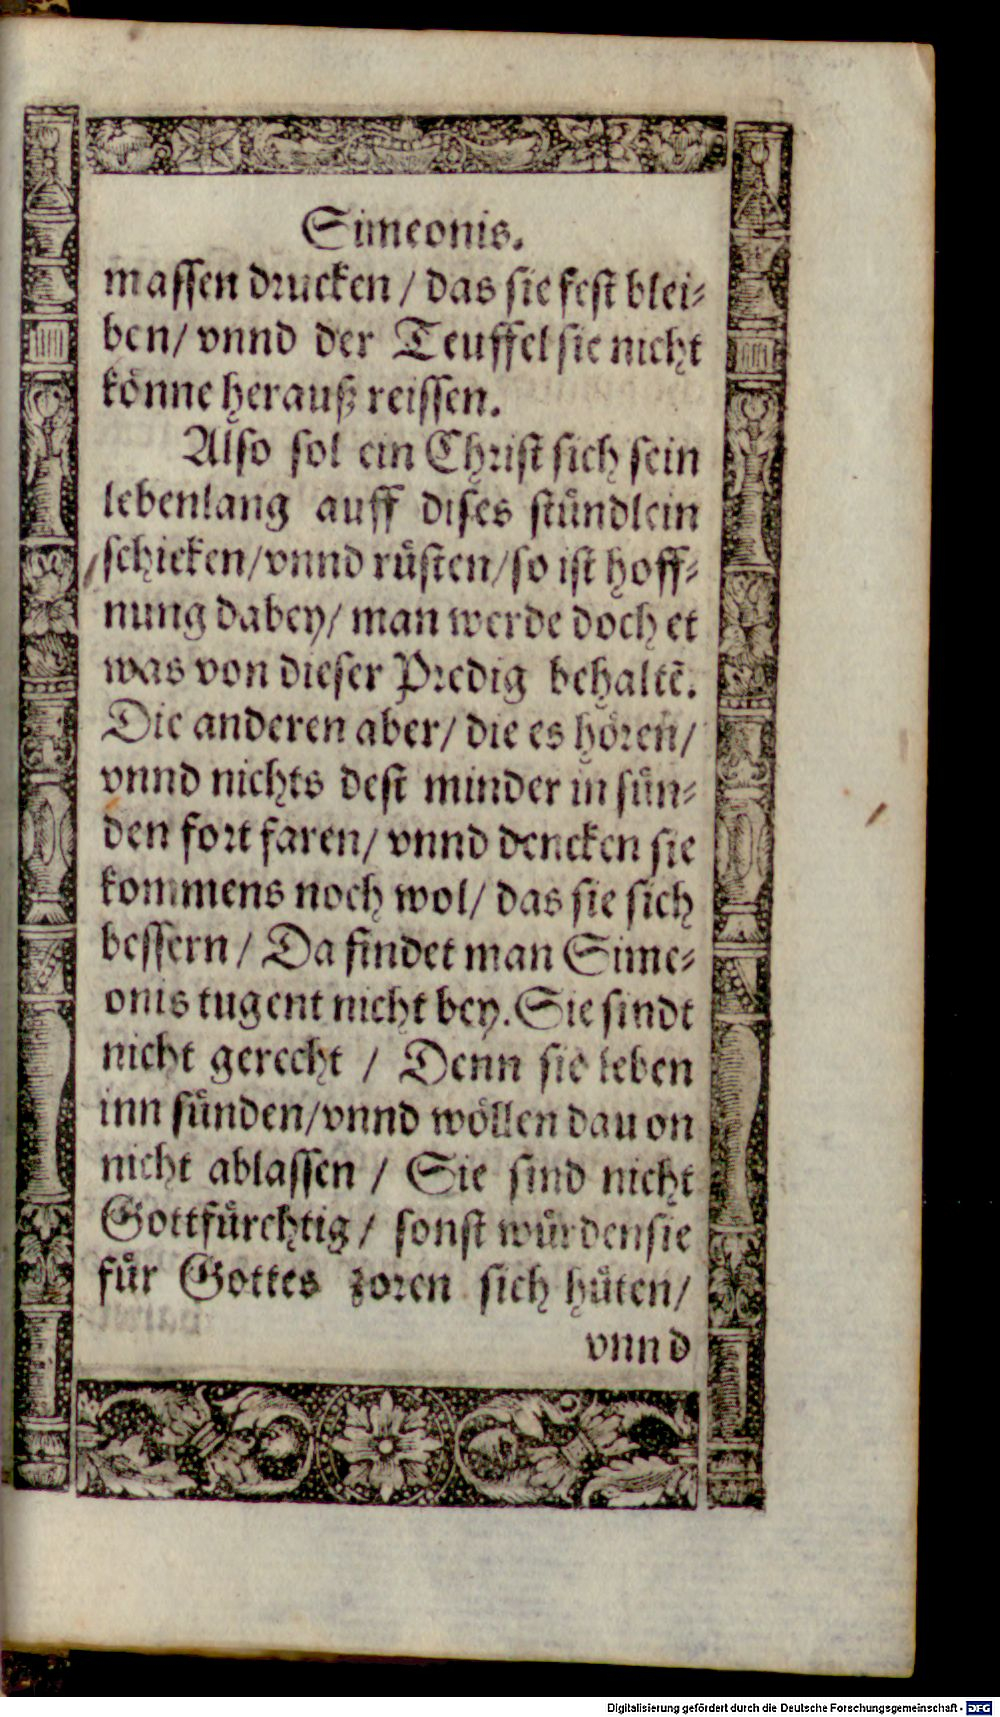 Simeonis.
massen drucken / das sie fest blei-
ben/ vnnd der Teuffel sie nicht
könne herauß reissen.
Also sol ein Christ sich sein
lebenlang auff dises stündlein
schicken/vnnd rüsten/so ist hoff-
nung dabey/ man werde doch et
was von dieser Predig behaltẽ.
Die anderen aber/ die es hören/
vnnd nichts dest minder in sün-
den fort faren/ vnnd dencken sie
kommens noch wol/ das sie sich
bessern / Da findet man Sime-
onis tugent nicht bey. Sie sindt
nicht gerecht / Denn sie leben
inn sünden/vnnd wöllen dauon
nicht ablassen / Sie sind nicht
Gottfürchtig/ sonst würden sie
für Gottes zoren sich hüten/
vnnd
Digitalisierung gefördert durch die Deutsche Forschungsgemeinschaft - DFG